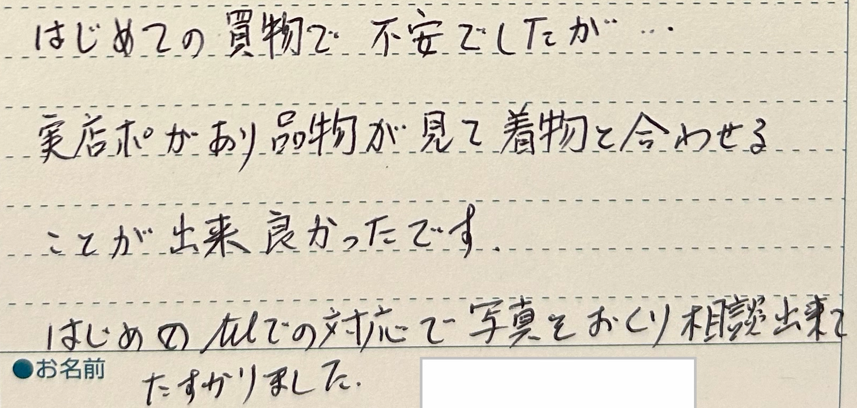 はじめての買物で 不安でしたが…
実店ポがあり品物が見て着物と合わせる
ことが出来良かったです.
はじめのTELでの対応で写真をおくり相談出来て
●お名前
たすかりました.